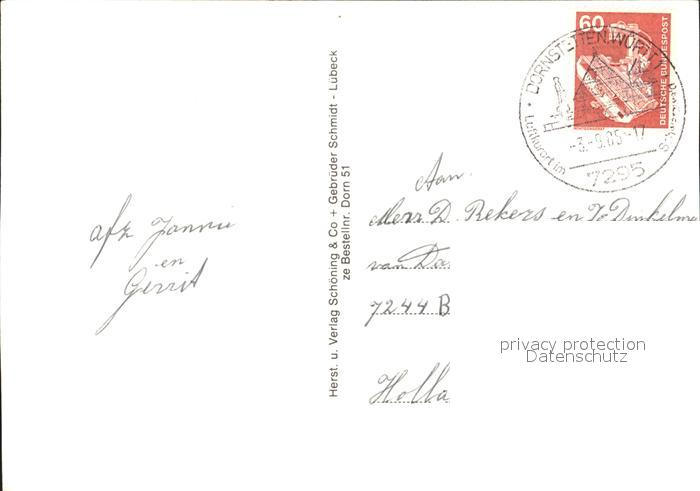 afz Jannie
en
Gerrit
Herst. u. Verlag Schöning & Co + Gebrüder Schmidt - Lübeck
ze Bestellnr. Dorn 51
60
DEUTSCHE BUNDESPOST
DORNSTETTEN, WÜRTT
Luftkurort im
7295
Aan.
D. Rekers en Jo Dunkelm
van Da
7244 B
Holla
privacy protection
Datenschutz